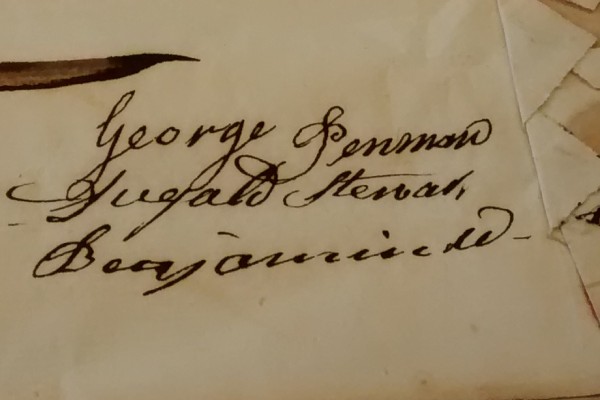 George Penman
Dugald Stewart
Benjamin W